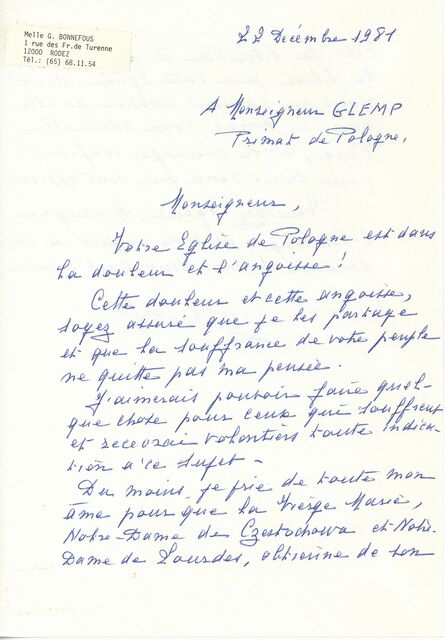 Melle G. BONNEFOUS
1 rue des Fr.de Turenne
12000 RODEZ
Tél.: (65) 68.11.54
22 Décembre 1981
A Monseigneur GLEMP
Primat de Pologne.
Monseigneur,
Votre Eglise de Pologne est dans
la douleur et l'angoisse !
Cette douleur et cette angoisse,
soyez assuré que je les partage
et que la souffrance de votre peuple
ne quitte pas ma pensée.
J'aimerais pouvoir faire quel-
que chose pour ceux qui souffrent
et recevrai volontiers toute indica-
tion à ce sujet -
Du moins, je prie de toute mon
âme pour que la Vierge Marie,
Notre-Dame de Czestochowa et Notre-
Dame de Lourdes, obtienne de son